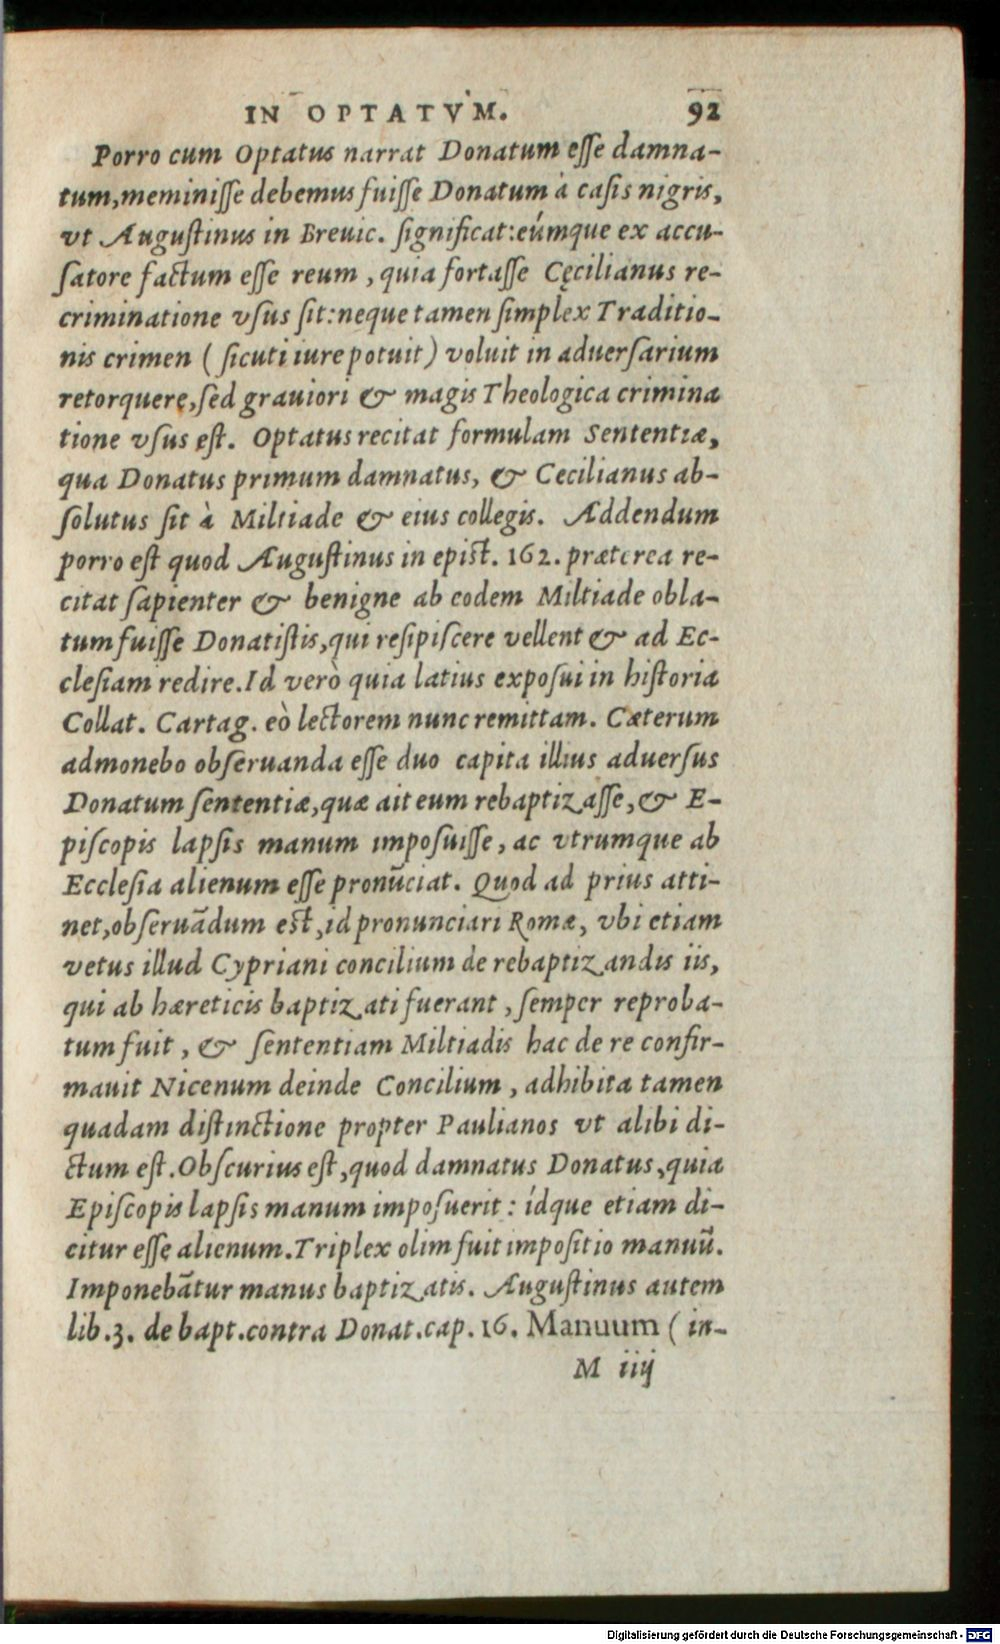 IN OPTATVM. 92
Porro cum Optatus narrat Donatum eſſe damna-
tum,meminiſſe debemus fuiſſe Donatum à caſis nigris,
vt Auguſtinus in Breuic. ſignificat:eúmque ex accu-
ſatore factum eſſe reum , quia fortaſſe Cęcilianus re-
criminatione vſus ſit:neque tamen ſimplex Traditio-
nis crimen ( ſicuti iure potuit) voluit in aduerſarium
retorquere,ſed grauiori & magis Theologica crimina
tione vſus eſt. Optatus recitat formulam Sententiæ,
qua Donatus primum damnatus, & Cecilianus ab-
ſolutus ſit à Miltiade & eius collegis. Addendum
porro eſt quod Auguſtinus in epiſt. 162. præterea re-
citat ſapienter & benigne ab eodem Miltiade obla-
tum fuiſſe Donatiſtis,qui reſipiſcere vellent & ad Ec-
cleſiam redire.Id verò quia latius expoſui in hiſtoria
Collat. Cartag. eò lectorem nunc remittam. Cæterum
admonebo obſeruanda eſſe duo capita illius aduerſus
Donatum ſententiæ,quæ ait eum rebaptizaſſe,& E-
piſcopis lapſis manum impoſuiſſe, ac vtrumque ab
Eccleſia alienum eſſe pronūciat. Quod ad prius atti-
net,obſeruādum eſt,id pronunciari Romæ, vbi etiam
vetus illud Cypriani concilium de rebaptizandis iis,
qui ab hæreticis baptizati fuerant , ſemper reproba-
tum fuit , & ſententiam Miltiadis hac de re confir-
mauit Nicenum deinde Concilium , adhibita tamen
quadam diſtinctione propter Paulianos vt alibi di-
ctum eſt.Obſcurius eſt,quod damnatus Donatus,quia
Epiſcopis lapſis manum impoſuerit : ídque etiam di-
citur eſſe alienum.Triplex olim fuit impoſitio manuū.
Imponebātur manus baptizatis. Auguſtinus autem
lib.3. de bapt.contra Donat.cap. 16. Manuum ( in-
M iiij
Digitalisierung gefördert durch die Deutsche Forschungsgemeinschaft - DFG